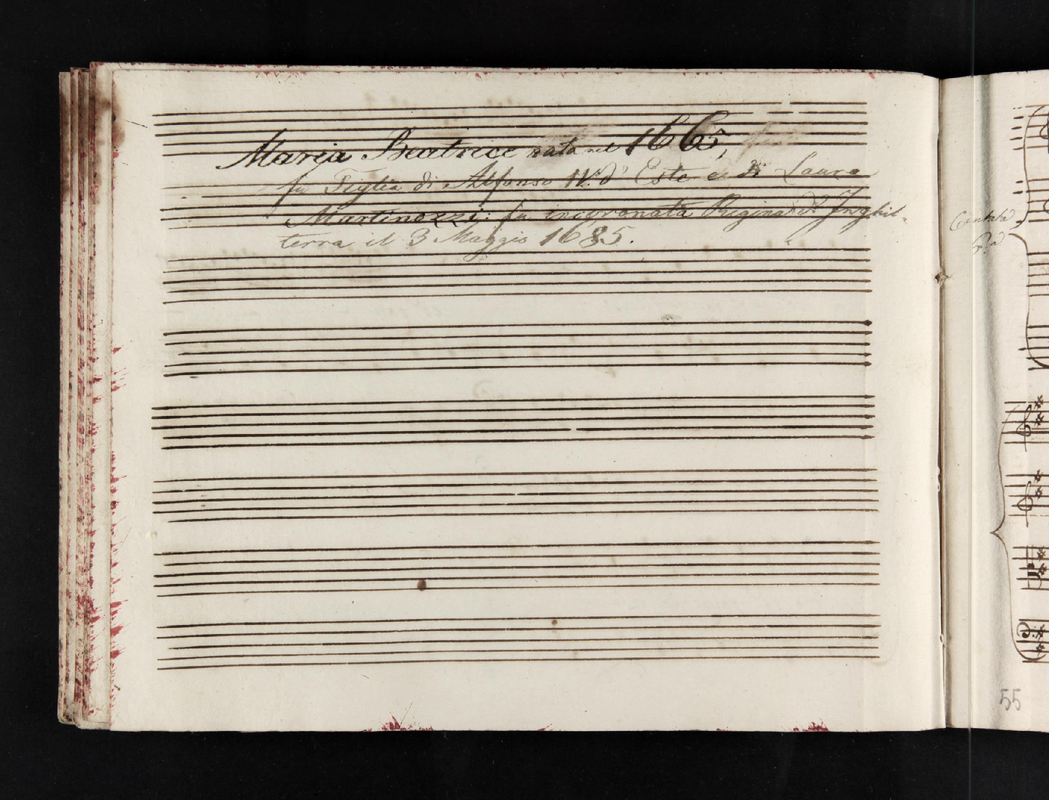 Maria Beatrice nata nel
fu Figlia di Alfonso IV. d'Este e di Laura
Martinozzi: fu incoronata Regina d'Inghil-
terra il 3 Maggio 1685.
Cantata
P.a
55